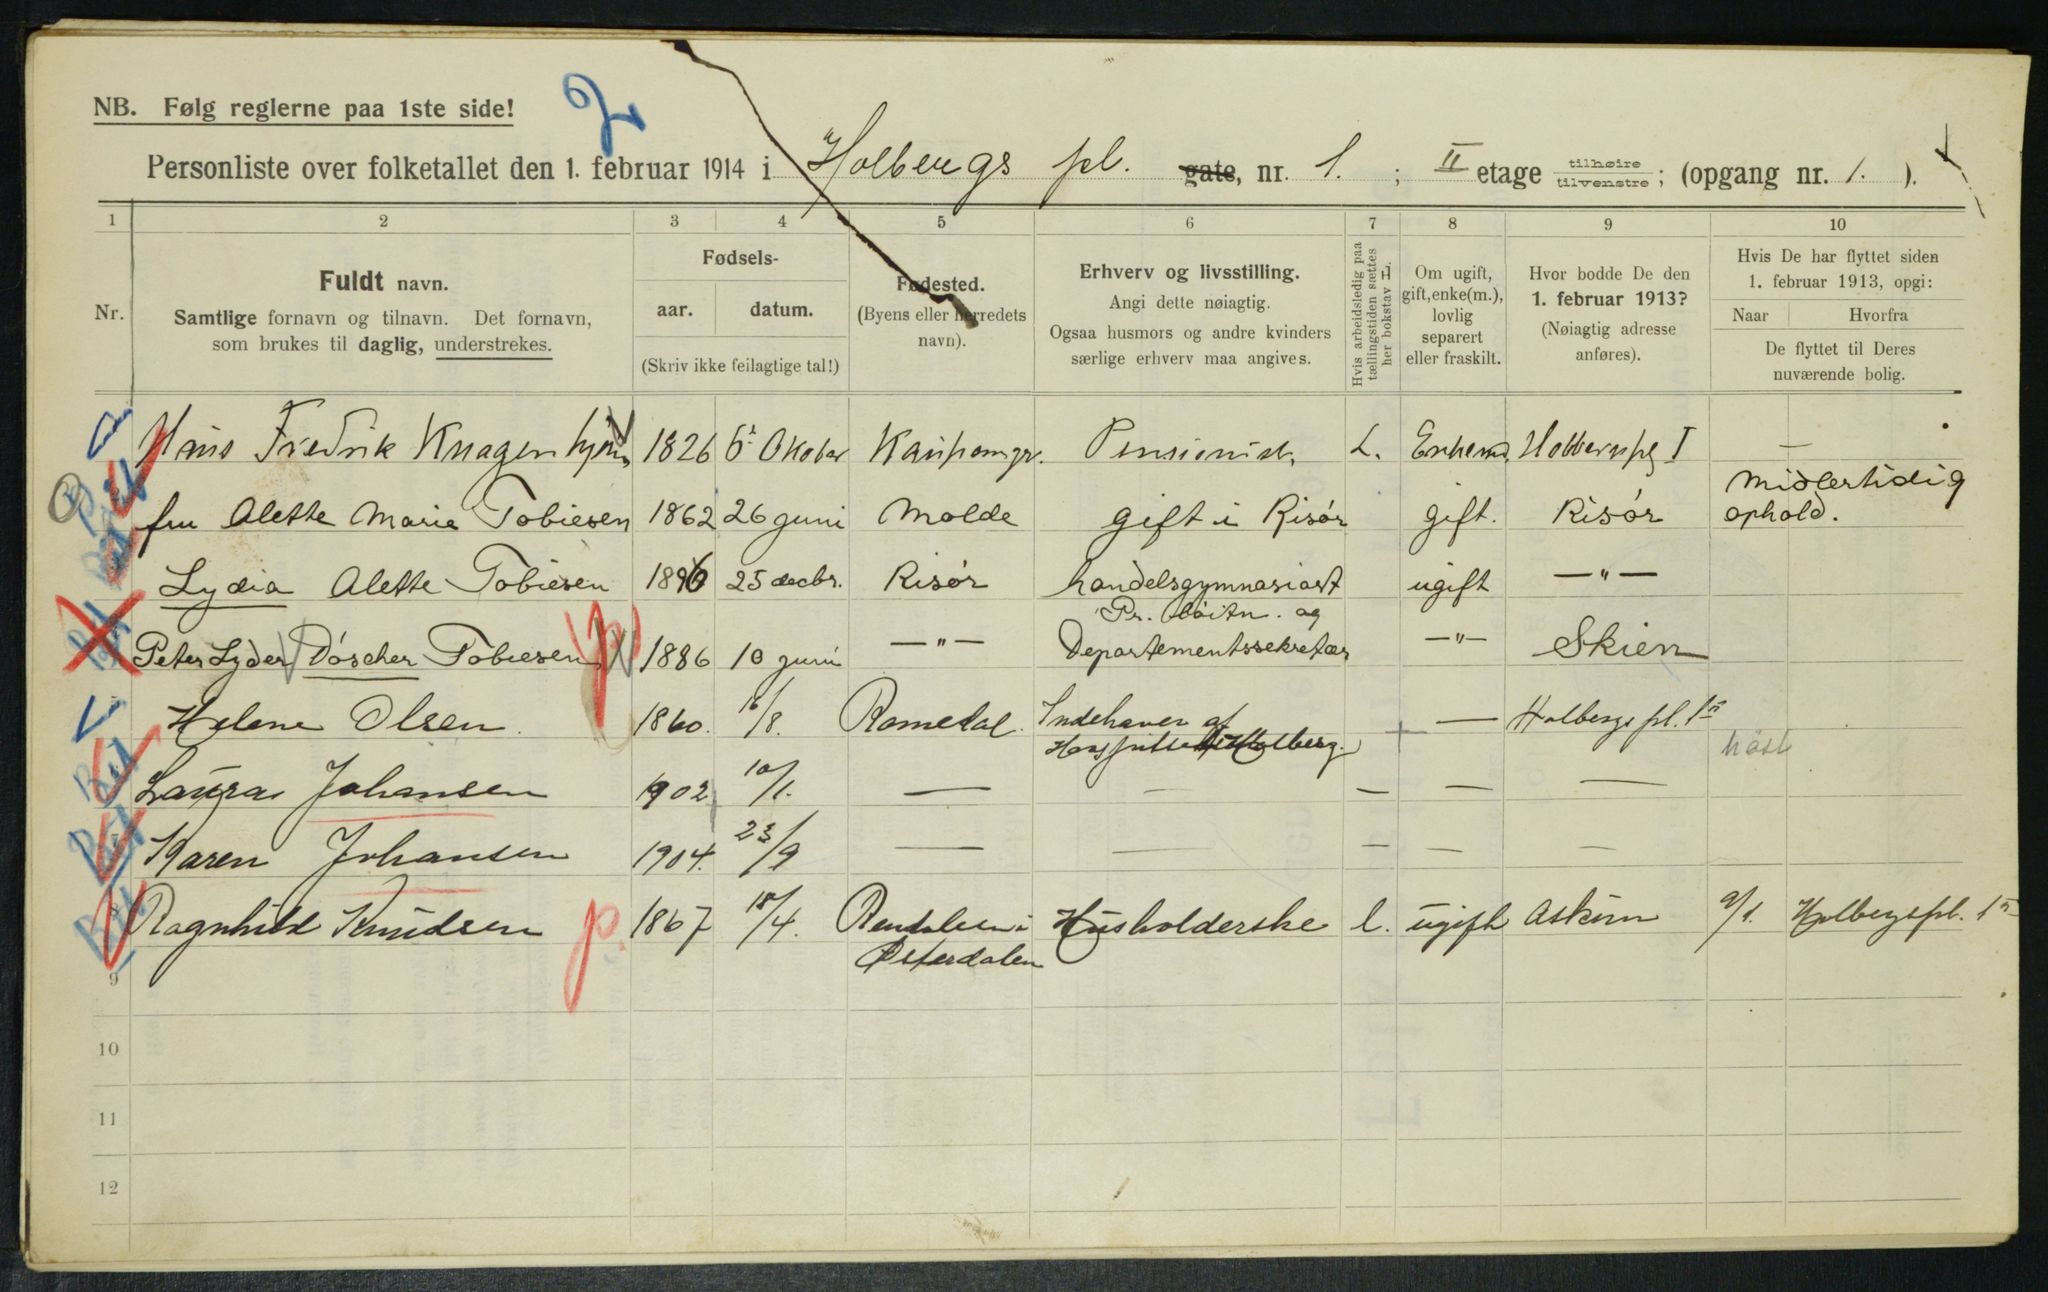 NB. Følg reglerne paa 1ste side!
2
Personliste over folketallet den 1. februar 1914 i Holbergs pl. gate, nr. 1. ; II etage tilhøire tilvenstre; (opgang nr. 1. ).
1 2 3 4 5 6 7 8 9 10
Nr.
Fuldt navn.
Samtlige fornavn og tilnavn. Det fornavn,
som brukes til daglig, understrekes.
Fødsels-
aar. datum.
(Skriv ikke feilagtige tal!)
Fødested.
(Byens eller herredets
navn).
Erhverv og livsstilling.
Angi dette nøiagtig.
Ogsaa husmors og andre kvinders
særlige erhverv maa angives.
Hvis arbeidsledig paa
tællingstiden settes
her bokstav L.
Om ugift,
gift, enke(m.),
lovlig
separert
eller fraskilt.
Hvor bodde De den
1. februar 1913?
(Nøiagtig adresse
anføres).
Hvis De har flyttet siden
1. februar 1913, opgi:
Naar Hvorfra
De flyttet til Deres
nuværende bolig.
Hans Fredrik Knagenhjelm 1826 Oktober Pensionist L. Enkem. —
fru Alette Marie Tobiesen 1862 26 juni Molde gift i Risør gift. Risør midlertidig ophold.
Lydia Alette Tobiesen 1896 25 decbr. Risør handelsgymnasiast ugift —"—
Peter Lyder Döscher Tobiesen 1886 10 juni —"— Pr. løitn. og Departementssekretær —"— Skien
Helene Olsen 1860. 16/8. Romedal. Indehaver af Holberg. — Holbergs pl. 1
høst
Laura Johansen 1902 10/1. — — — — —
Karen Johansen 1904. 23/9 — — — — —
8 Ragnhild Knudsen p. 1867 18/4. Rendalen i Østerdalen Husholderske l. ugift Askim 9/1. Holbergs pl. 1
9
10
11
12